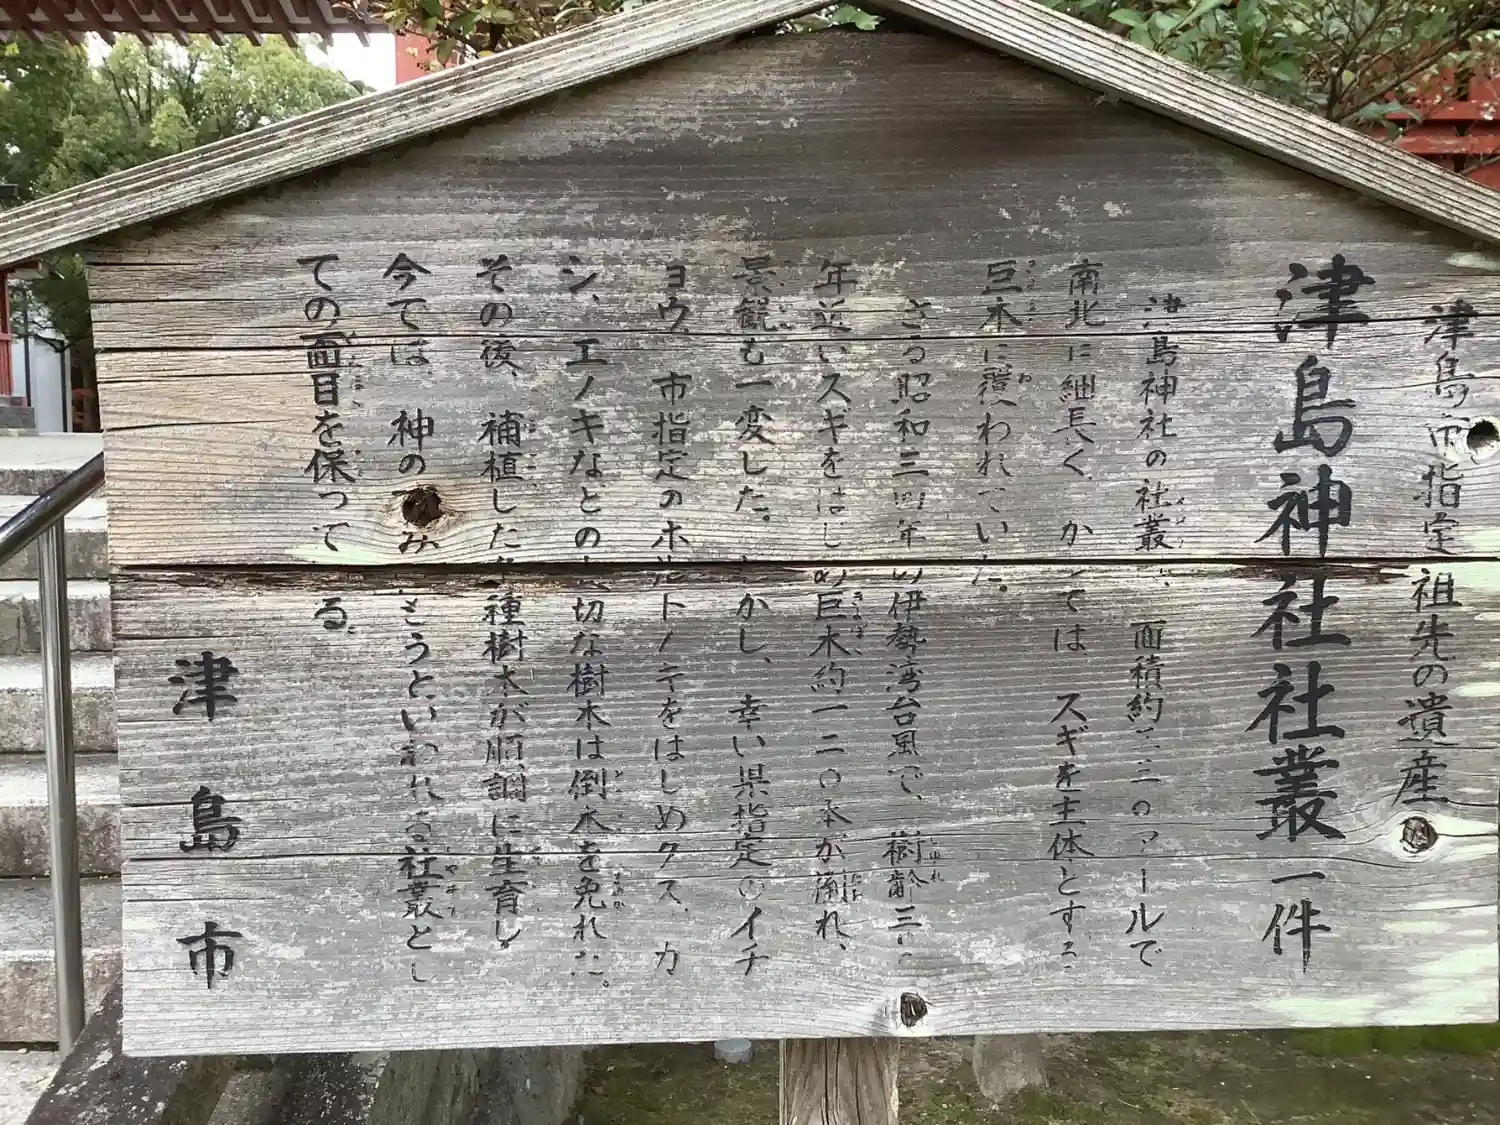 津島市指定 祖先の遺産
津島神社社叢 一件
津島神社の社叢は、面積約三三〇アールで
南北に細長く、かつては スギを主体とする
巨木に覆われていた。
さる昭和三四年の伊勢湾台風で、樹齢三〇〇
年近いスギをはじめ巨木約一二〇本が倒れ、
景観も一変した。しかし、幸い県指定のイチ
ョウ、市指定のホルトノキをはじめクス、カ
シ、エノキなどの大切な樹木は倒木を免れた。
その後、補植した各種樹木が順調に生育し、
今では 神の もりといわれる社叢とし
ての面目を保っている。
津島市